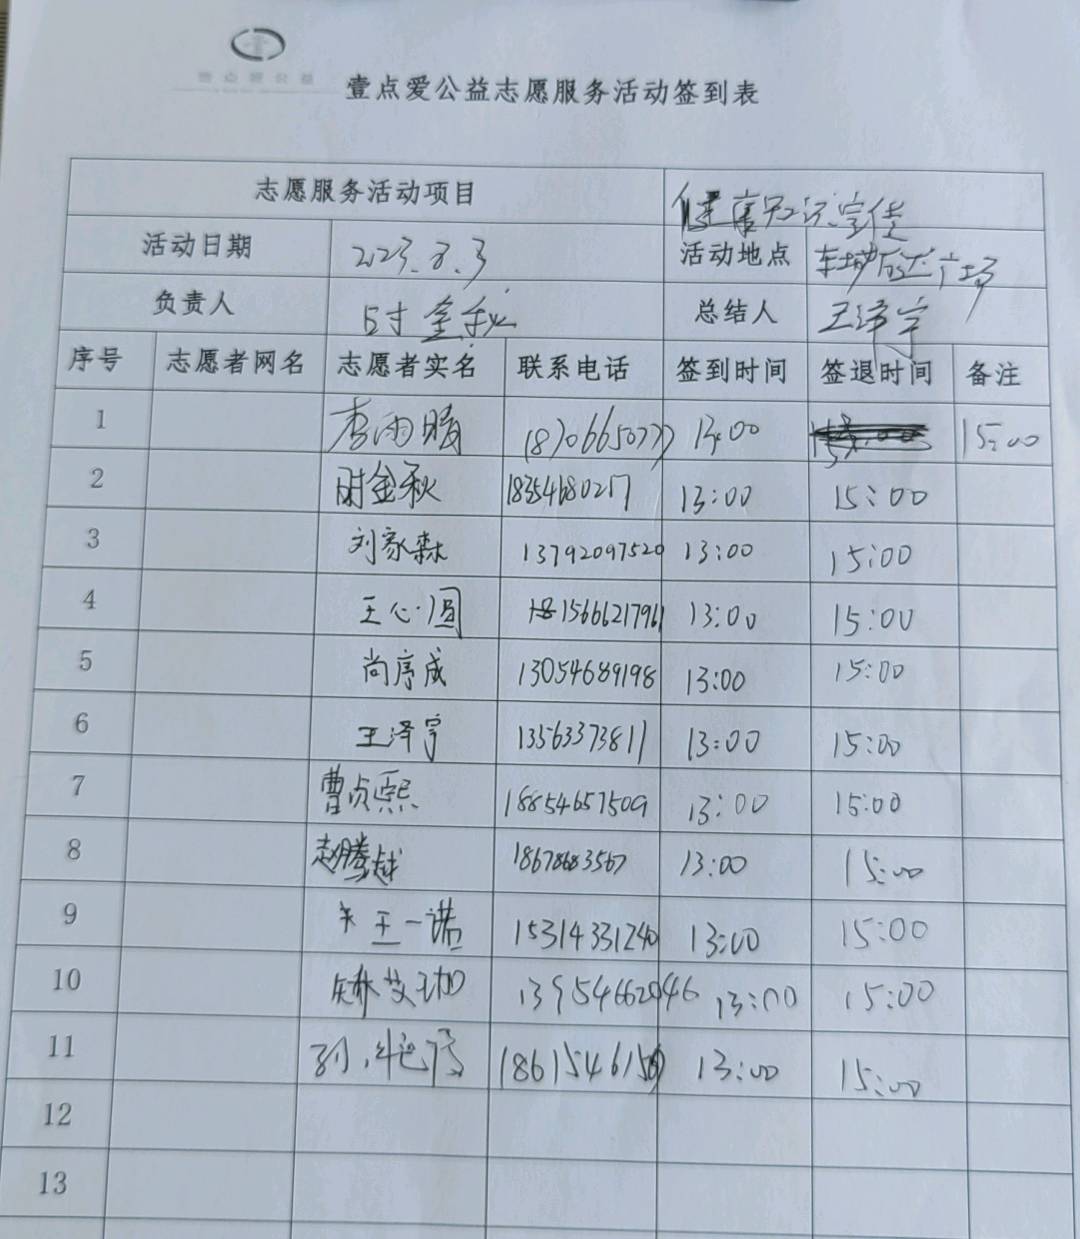 壹点爱公益志愿服务活动签到表
志愿服务活动项目 健康知识宣传
活动日期 2023.8.3 活动地点 广场
负责人 时金秋 总结人 王泽宇
序号 志愿者网名 志愿者实名 联系电话 签到时间 签退时间 备注
1 李雨晴 18706650777 13:00 15:00
2 时金秋 18354680217 13:00 15:00
3 刘家森 13792097520 13:00 15:00
4 王心圆 15666217961 13:00 15:00
5 尚序成 13054689198 13:00 15:00
6 王泽宇 13563373811 13:00 15:00
7 曹贞熙 18854657509 13:00 15:00
8 赵腾越 18678683567 13:00 15:00
9 王一诺 15314331240 13:00 15:00
10 13954662046 13:00 15:00
11 13:00 15:00
12
13